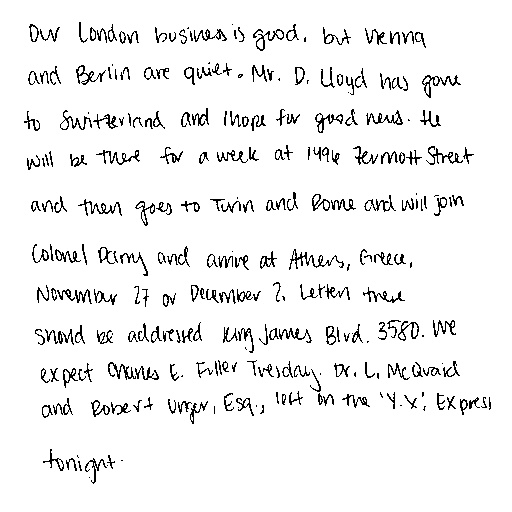 Our London business is good, but Vienna
and Berlin are quiet. Mr. D. Lloyd has gone
to Switzerland and I hope for good news. He
will be there for a week at 1496 Zermott Street
and then goes to Turin and Rome and will join
Colonel Parry and arrive at Athens, Greece,
November 27 or December 2. Letters there
should be addressed King James Blvd. 3580. We
expect Charles E. Fuller Tuesday. Dr. L. McQuaid
and Robert Unger, Esq., left on the 'Y.X.', Express
tonight.